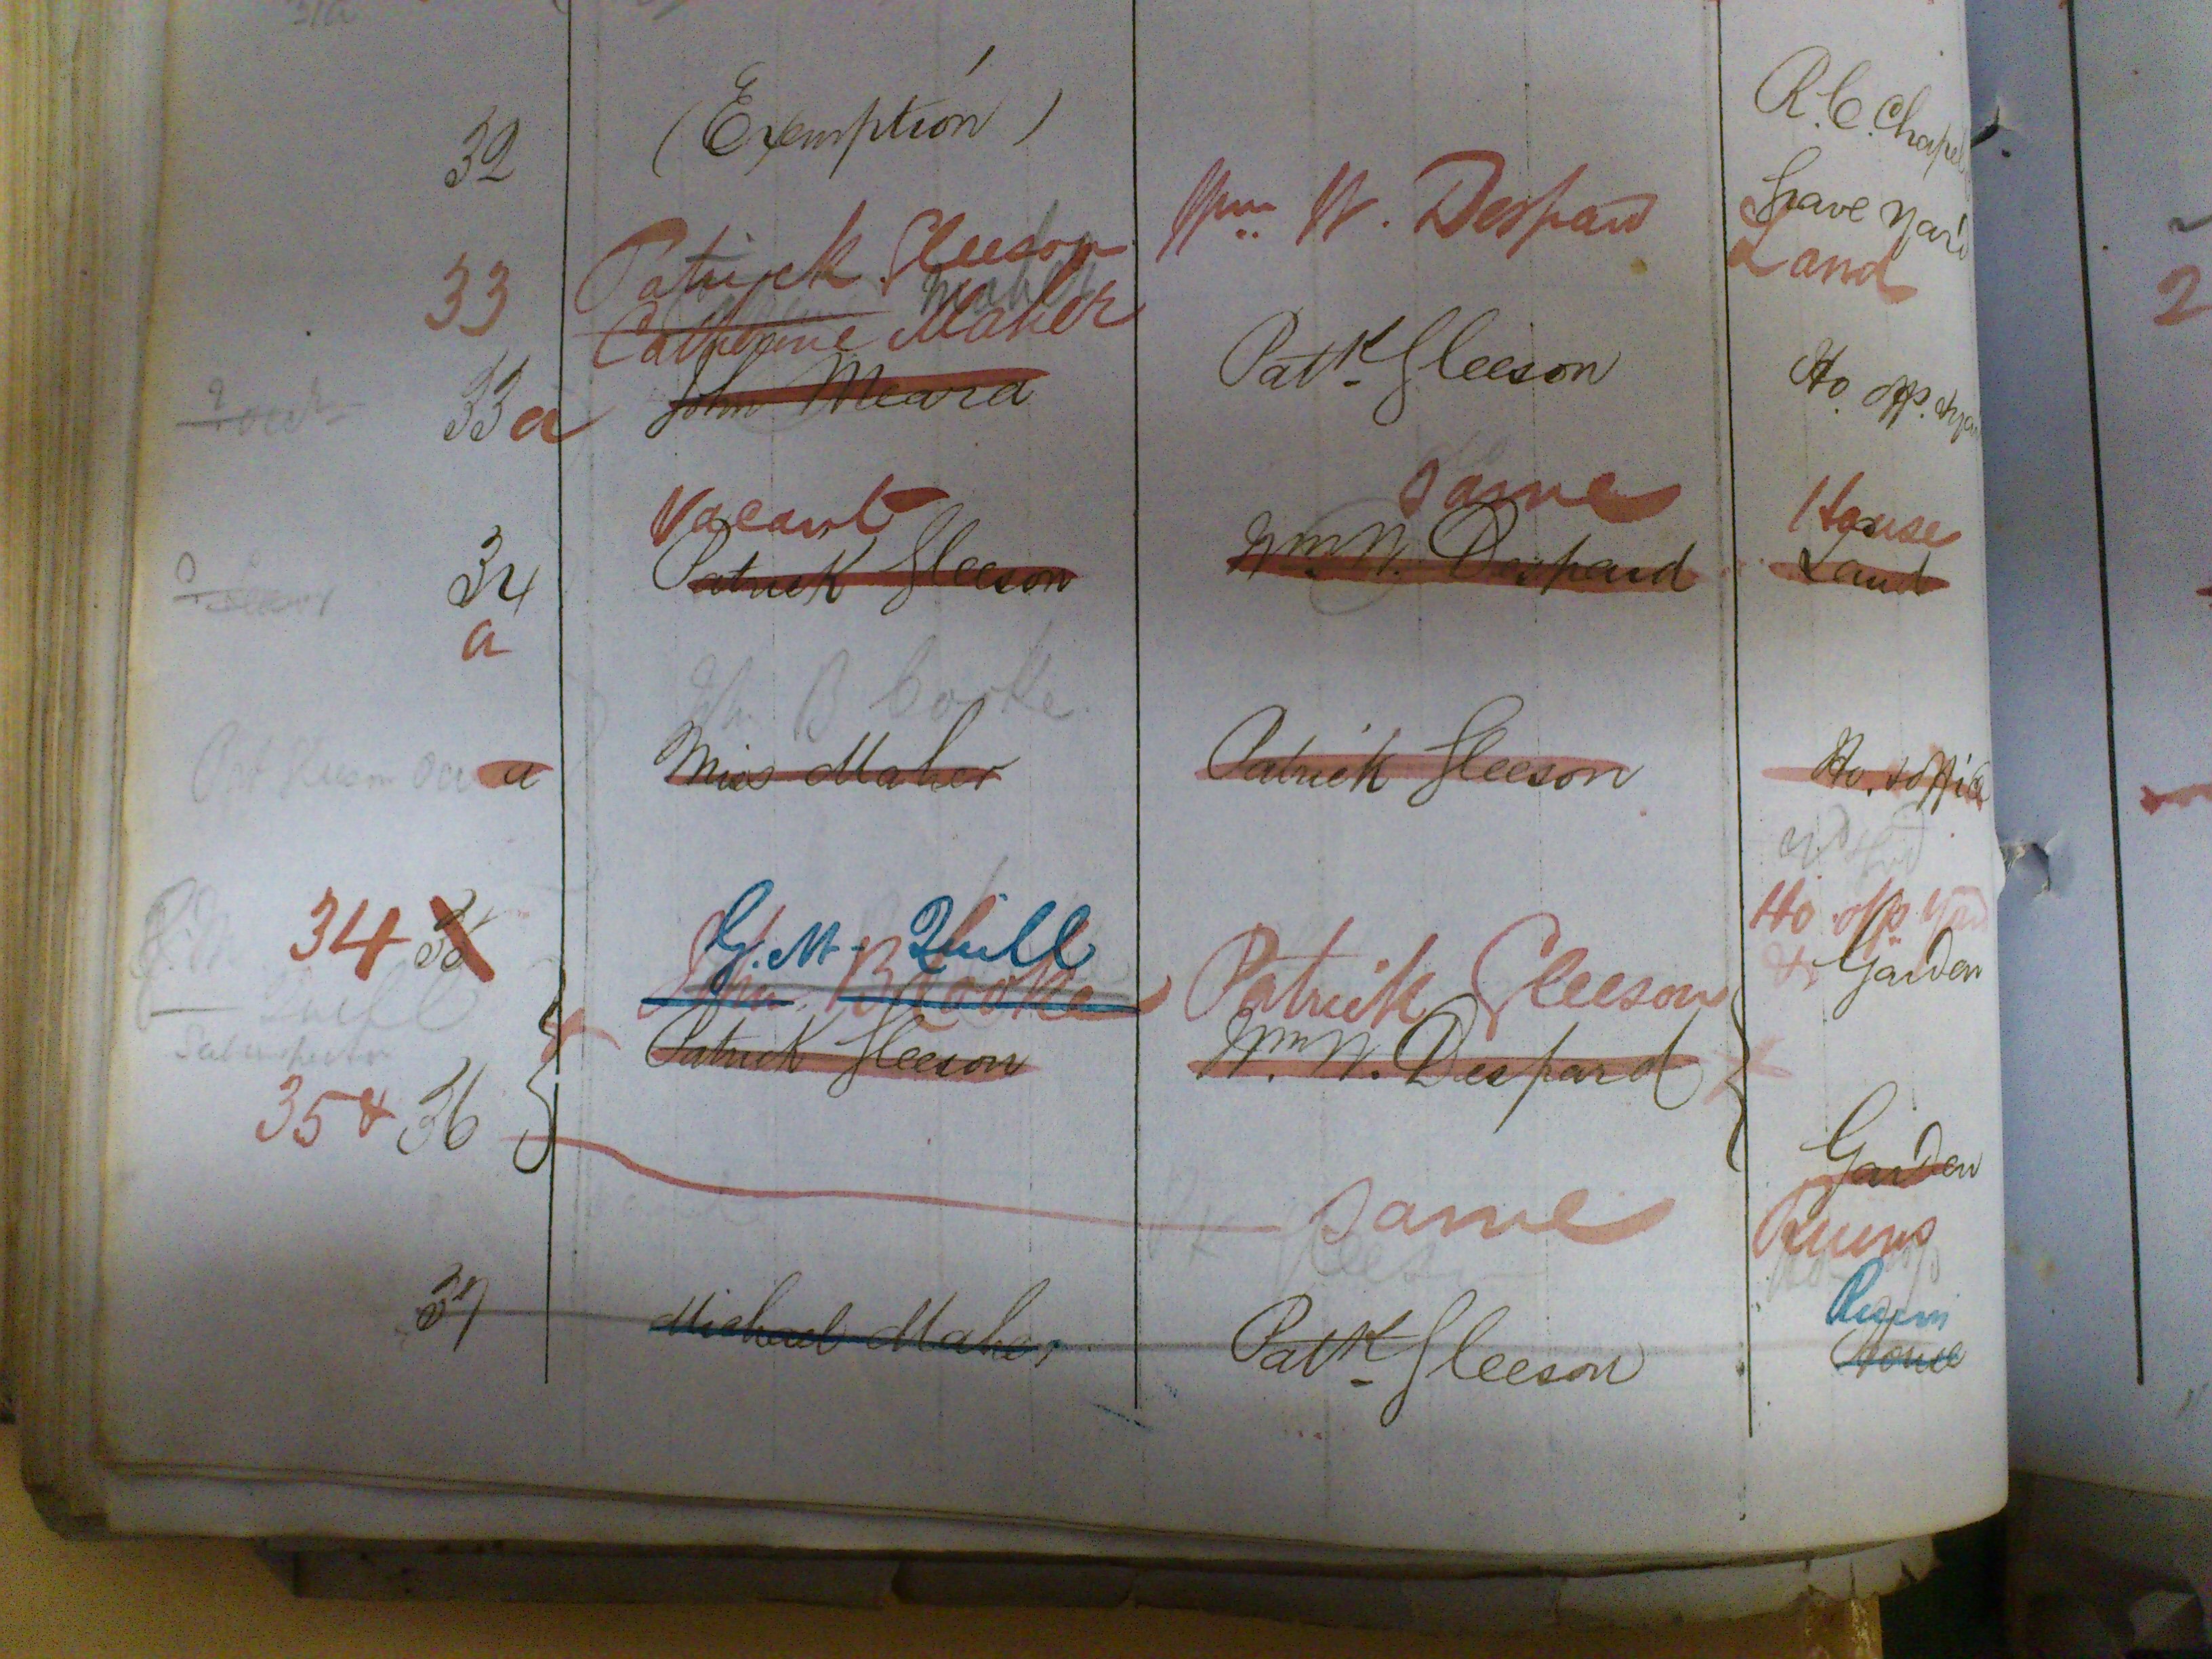 31a
32 (Exemption) R.C. Chapel
Grave Yard
33 Patrick Gleeson Wm W. Despard Land
Maher
Catherine Maher
33a John Meara Patk Gleeson Ho. off. & ya
Vacant Same House
34 Patrick Gleeson Wm W. Despard Land
a
Jn. B Cooke
a Miss Maher Patrick Gleeson Ho. & Offic
34 35 G. M. Quill Ho. off. Yard
Jn. B Cooke Patrick Gleeson & Garden
Quill
Patrick Gleeson Wm W. Despard
35 & 36 Garden
Same Ruins
Ruins
37 Michael Maher Patk Gleeson House